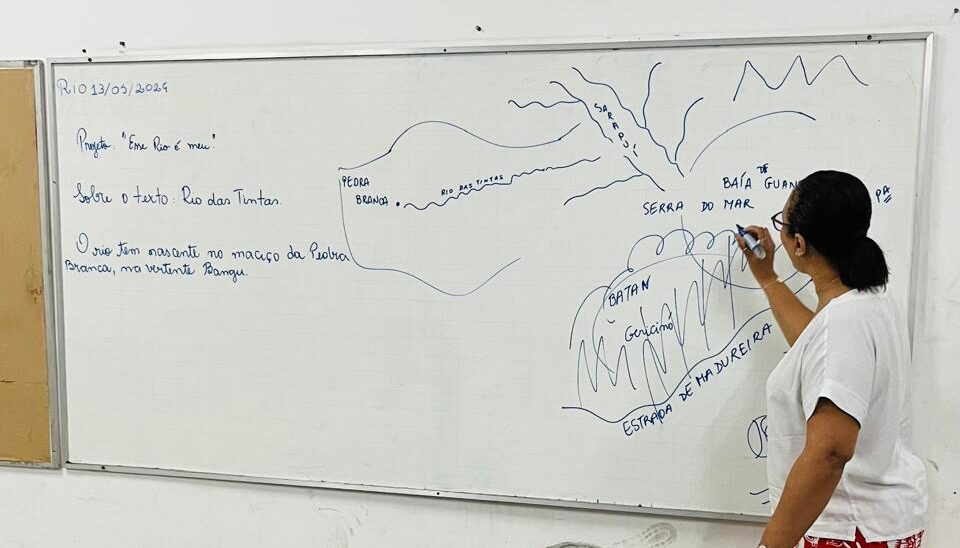 RIO 13/05/2024
Projeto: "Esse Rio é meu".
Sobre o texto: Rio das Tintas.
O rio tem nascente no maciço da Pedra
Branca, na vertente Bangu.
PEDRA
BRANCA
RIO DAS TINTAS
SARAPUÍ
BAÍA DE GUAN
SERRA DO MAR
BATAN
Gericinó
ESTRADA DE MADUREIRA